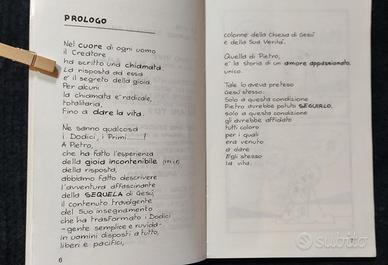 PROLOGO
Nel cuore di ogni uomo
il Creatore
ha scritto una chiamata.
La risposta ad essa
è il segreto della gioia.
Per alcuni
la chiamata è radicale,
totalitaria,
Fino a dare la vita.
Ne sanno qualcosa
i Dodici, i Primi
A Pietro,
che ha fatto l'esperienza
della gioia incontenibile
della risposta,
abbiamo fatto descrivere
l'avventura affascinante
della SEQUELA di Gesù,
il contenuto travolgente
del Suo insegnamento
che ha trasformato i Dodici
-gente semplice e ruvida-
in uomini disposti a tutto,
liberi e pacifici,
6
colonne della Chiesa di Gesù
e della Sua Verità.
Quella di Pietro,
è la storia di un amore appassionato,
unico.
Tale lo aveva preteso
Gesù stesso.
Solo a questa condizione
Pietro avrebbe potuto SEGUIRLO,
solo a questa condizione
gli avrebbe affidato
tutti coloro
per i quali
era venuto
a dare
Egli stesso
la vita.
subito